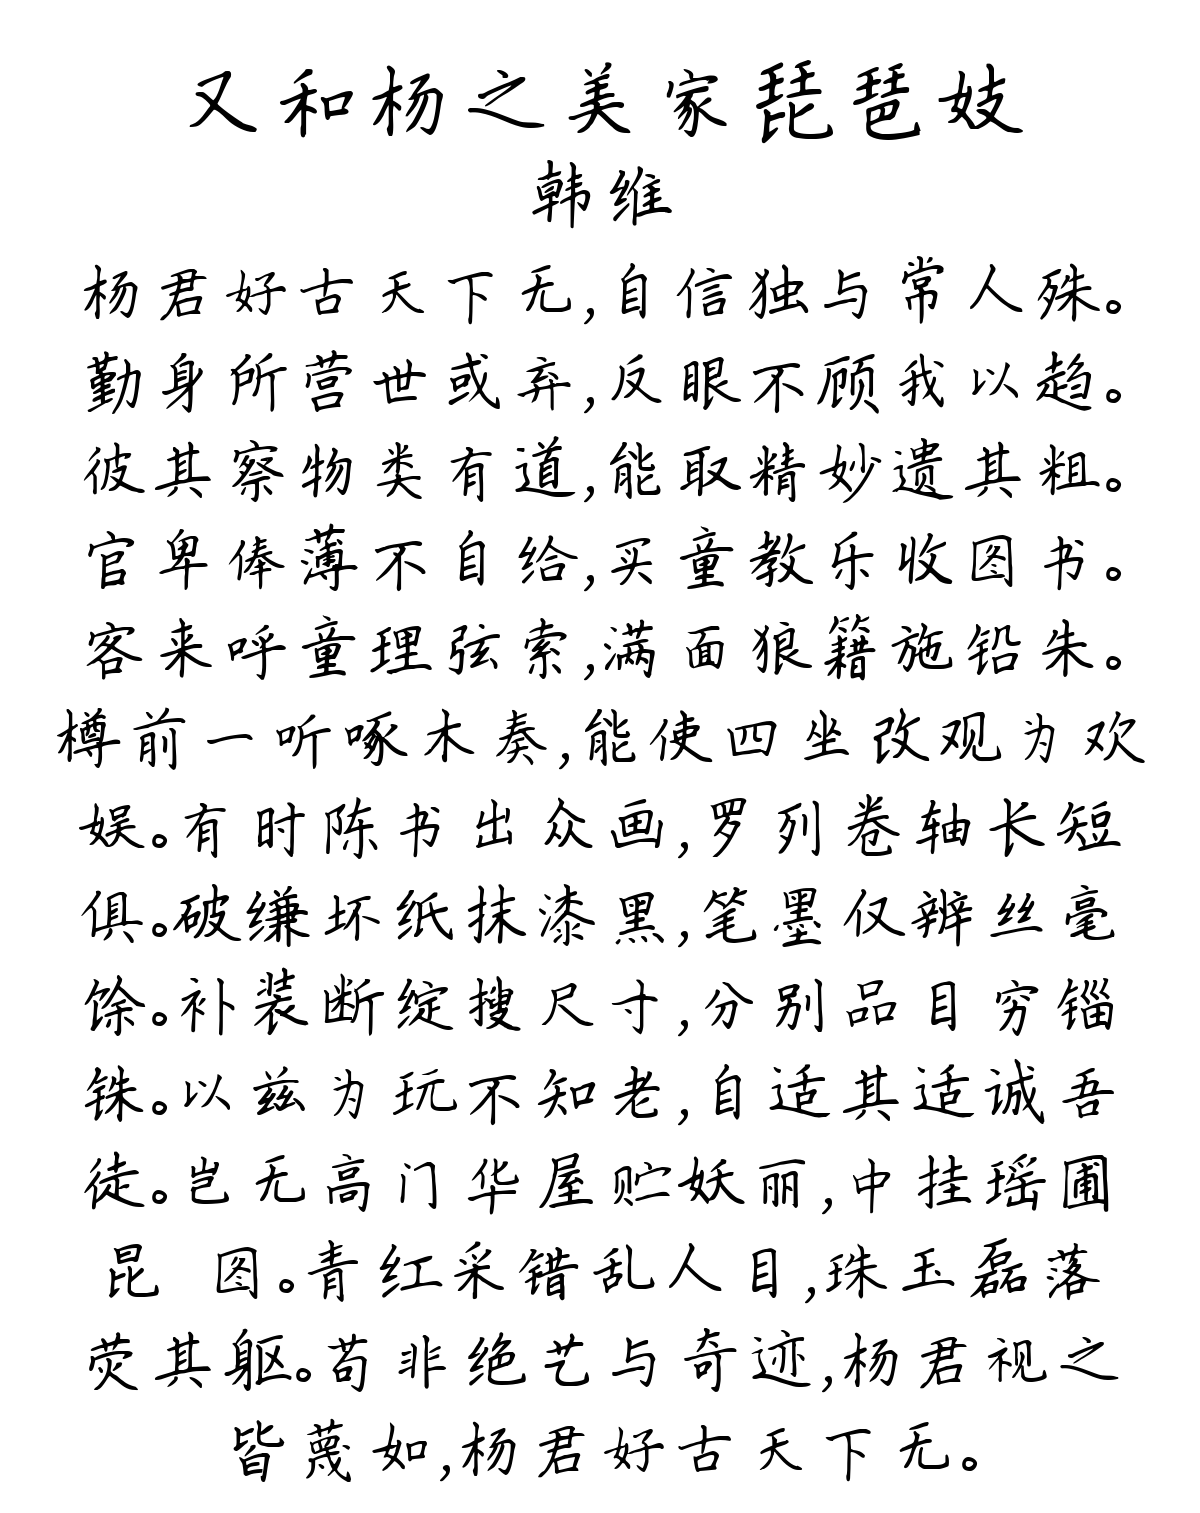 又和杨之美家琵琶妓
韩维
杨君好古天下无,自信独与常人殊。
勤身所营世或弃,反眼不顾我以趋。
彼其察物类有道,能取精妙遗其粗。
官卑俸薄不自给,买童教乐收图书。
客来呼童理弦索,满面狼籍施铅朱。
樽前一听啄木奏,能使四坐改观为欢
娱。有时陈书出众画,罗列卷轴长短
俱。破缣坏纸抹漆黑,笔墨仅辨丝毫
馀。补装断绽搜尺寸,分别品目穷锱
铢。以兹为玩不知老,自适其适诚吾
徒。岂无高门华屋贮妖丽,中挂瑶圃
昆 图。青红采错乱人目,珠玉磊落
荧其躯。苟非绝艺与奇迹,杨君视之
皆蔑如,杨君好古天下无。